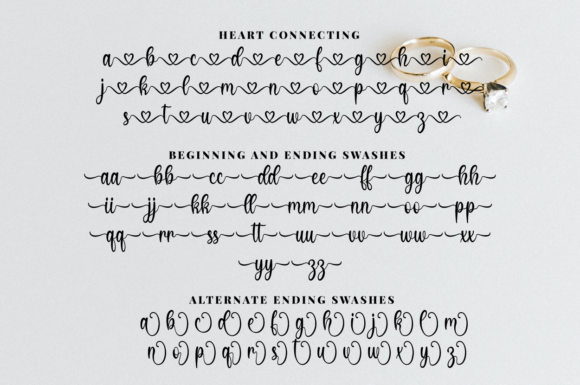 HEART CONNECTING
a b c d e f g h i
j k l m n o p q r
s t u v w x y z
BEGINNING AND ENDING SWASHES
aa bb cc dd ee ff gg hh
ii jj kk ll mm nn oo pp
qq rr ss tt uu vv ww xx
yy zz
ALTERNATE ENDING SWASHES
a b c d e f g h i j k l m
n o p q r s t u v w x y z